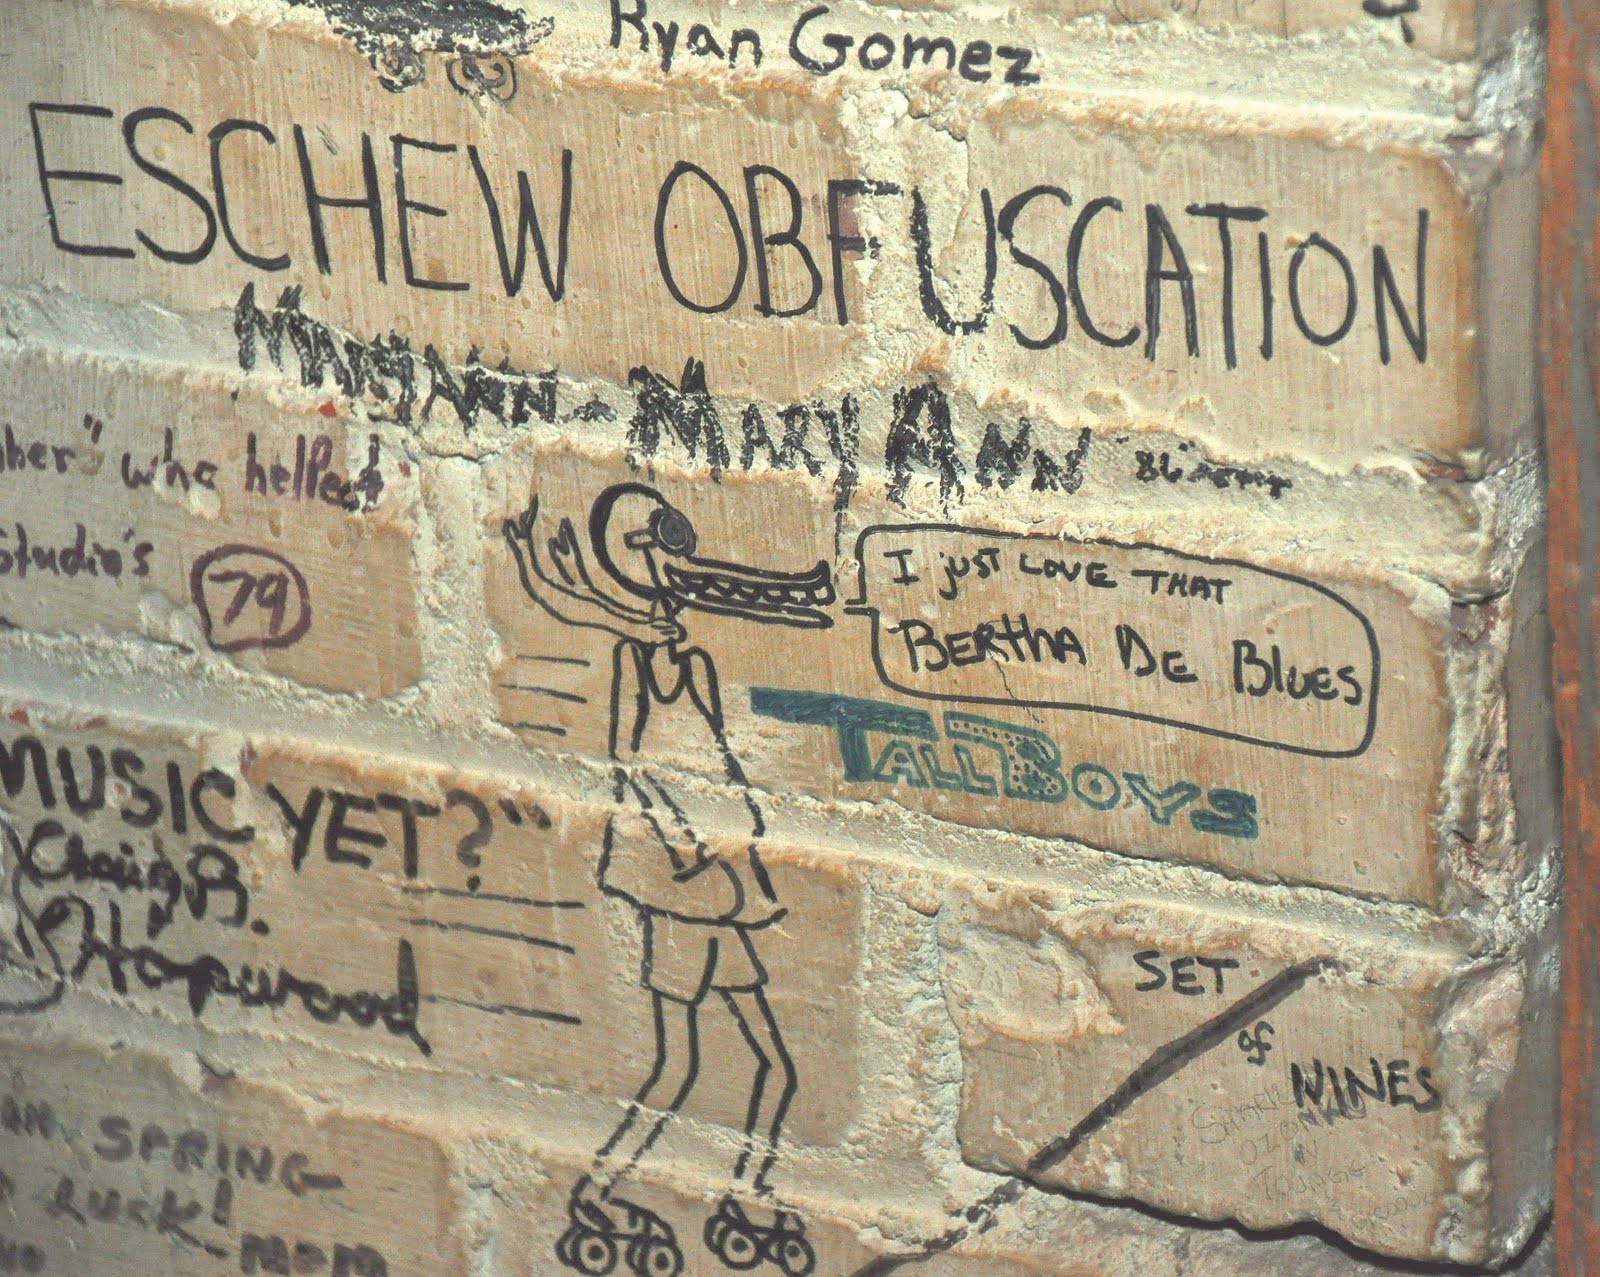 Ryan Gomez
ESCHEW OBFUSCATION
MARYANN - MARY ANN
"who hellped
Studio's 79
I JUST LOVE THAT
BERTHA DE BLUES
TALL BOYS
MUSIC YET?"
Craig R.
Hopwood
SET
of
NINES
SPRING
LUCK!
MOM